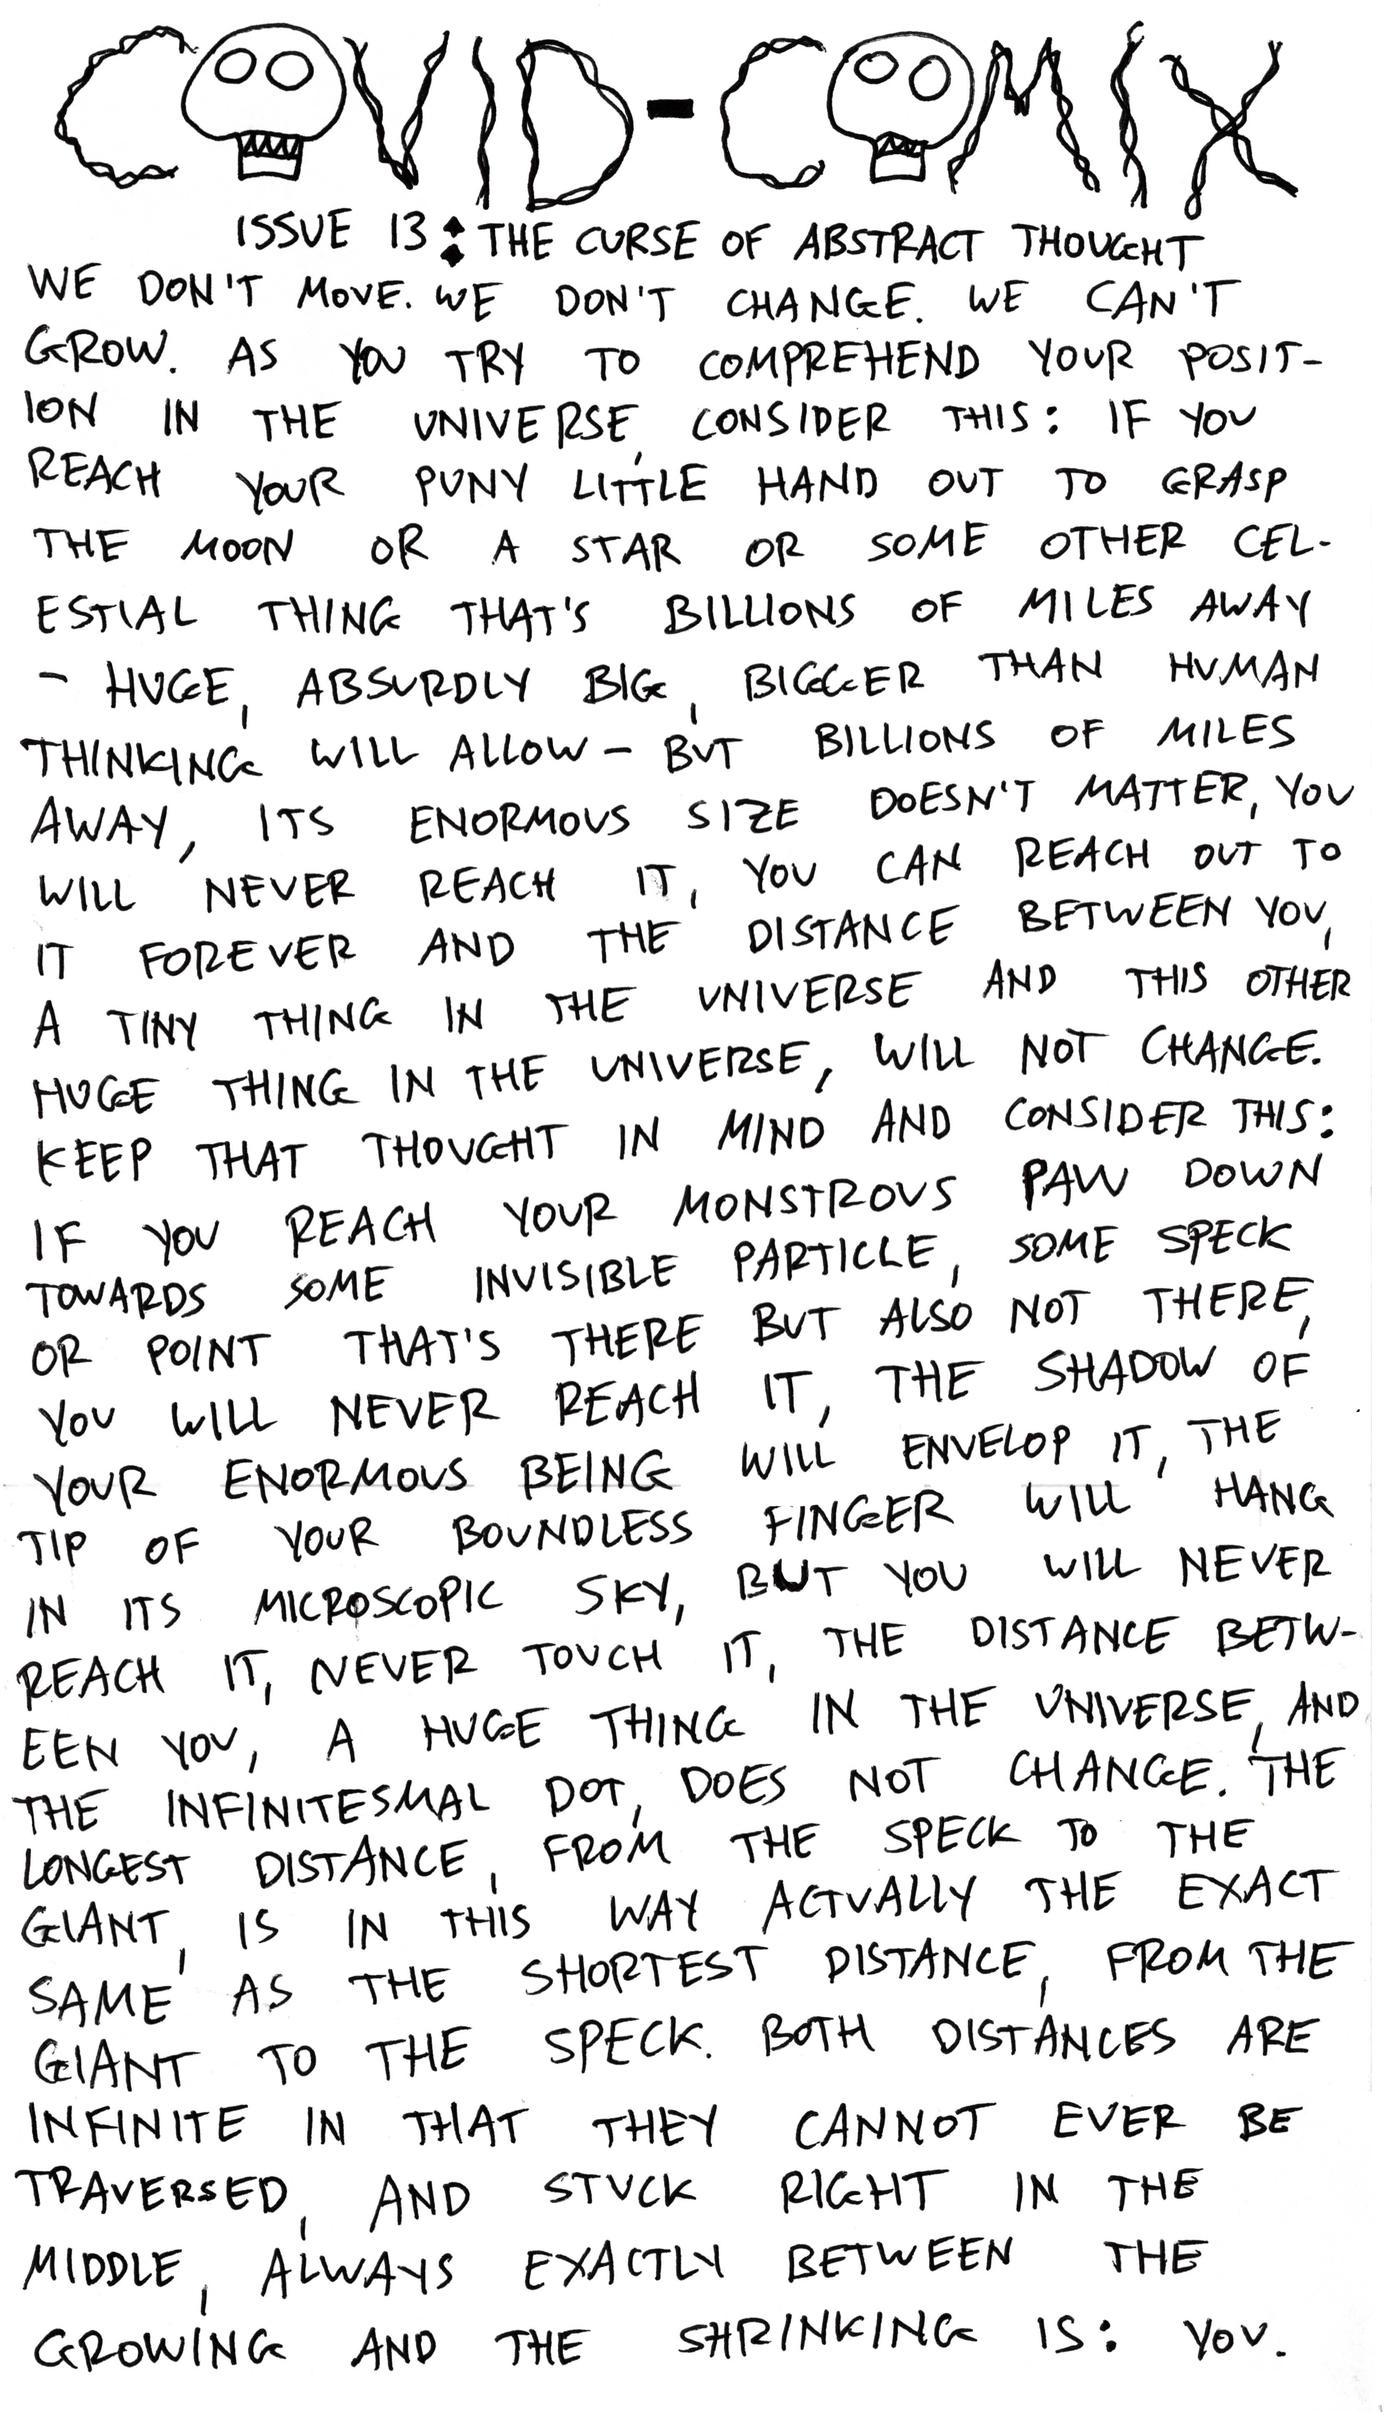 COVID-COMIX
ISSUE 13: THE CURSE OF ABSTRACT THOUGHT
WE DON'T MOVE. WE DON'T CHANGE. WE CAN'T
GROW. AS YOU TRY TO COMPREHEND YOUR POSIT-
ION IN THE UNIVERSE, CONSIDER THIS: IF YOU
REACH YOUR PUNY LITTLE HAND OUT TO GRASP
THE MOON OR A STAR OR SOME OTHER CEL-
ESTIAL THING THAT'S BILLIONS OF MILES AWAY
- HUGE, ABSURDLY BIG, BIGGER THAN HUMAN
THINKING WILL ALLOW - BUT BILLIONS OF MILES
AWAY, ITS ENORMOUS SIZE DOESN'T MATTER, YOU
WILL NEVER REACH IT, YOU CAN REACH OUT TO
IT FOREVER AND THE DISTANCE BETWEEN YOU,
A TINY THING IN THE UNIVERSE AND THIS OTHER
HUGE THING IN THE UNIVERSE, WILL NOT CHANGE.
KEEP THAT THOUGHT IN MIND AND CONSIDER THIS:
IF YOU REACH YOUR MONSTROUS PAW DOWN
TOWARDS SOME INVISIBLE PARTICLE, SOME SPECK
OR POINT THAT'S THERE BUT ALSO NOT THERE,
YOU WILL NEVER REACH IT, THE SHADOW OF
YOUR ENORMOUS BEING WILL ENVELOP IT, THE
TIP OF YOUR BOUNDLESS FINGER WILL HANG
IN ITS MICROSCOPIC SKY, BUT YOU WILL NEVER
REACH IT, NEVER TOUCH IT, THE DISTANCE BETW-
EEN YOU, A HUGE THING IN THE UNIVERSE, AND
THE INFINITESMAL DOT, DOES NOT CHANGE. THE
LONGEST DISTANCE, FROM THE SPECK TO THE
GIANT, IS IN THIS WAY ACTUALLY THE EXACT
SAME AS THE SHORTEST DISTANCE, FROM THE
GIANT TO THE SPECK. BOTH DISTANCES ARE
INFINITE IN THAT THEY CANNOT EVER BE
TRAVERSED, AND STUCK RIGHT IN THE
MIDDLE, ALWAYS EXACTLY BETWEEN THE
GROWING AND THE SHRINKING IS: YOU.